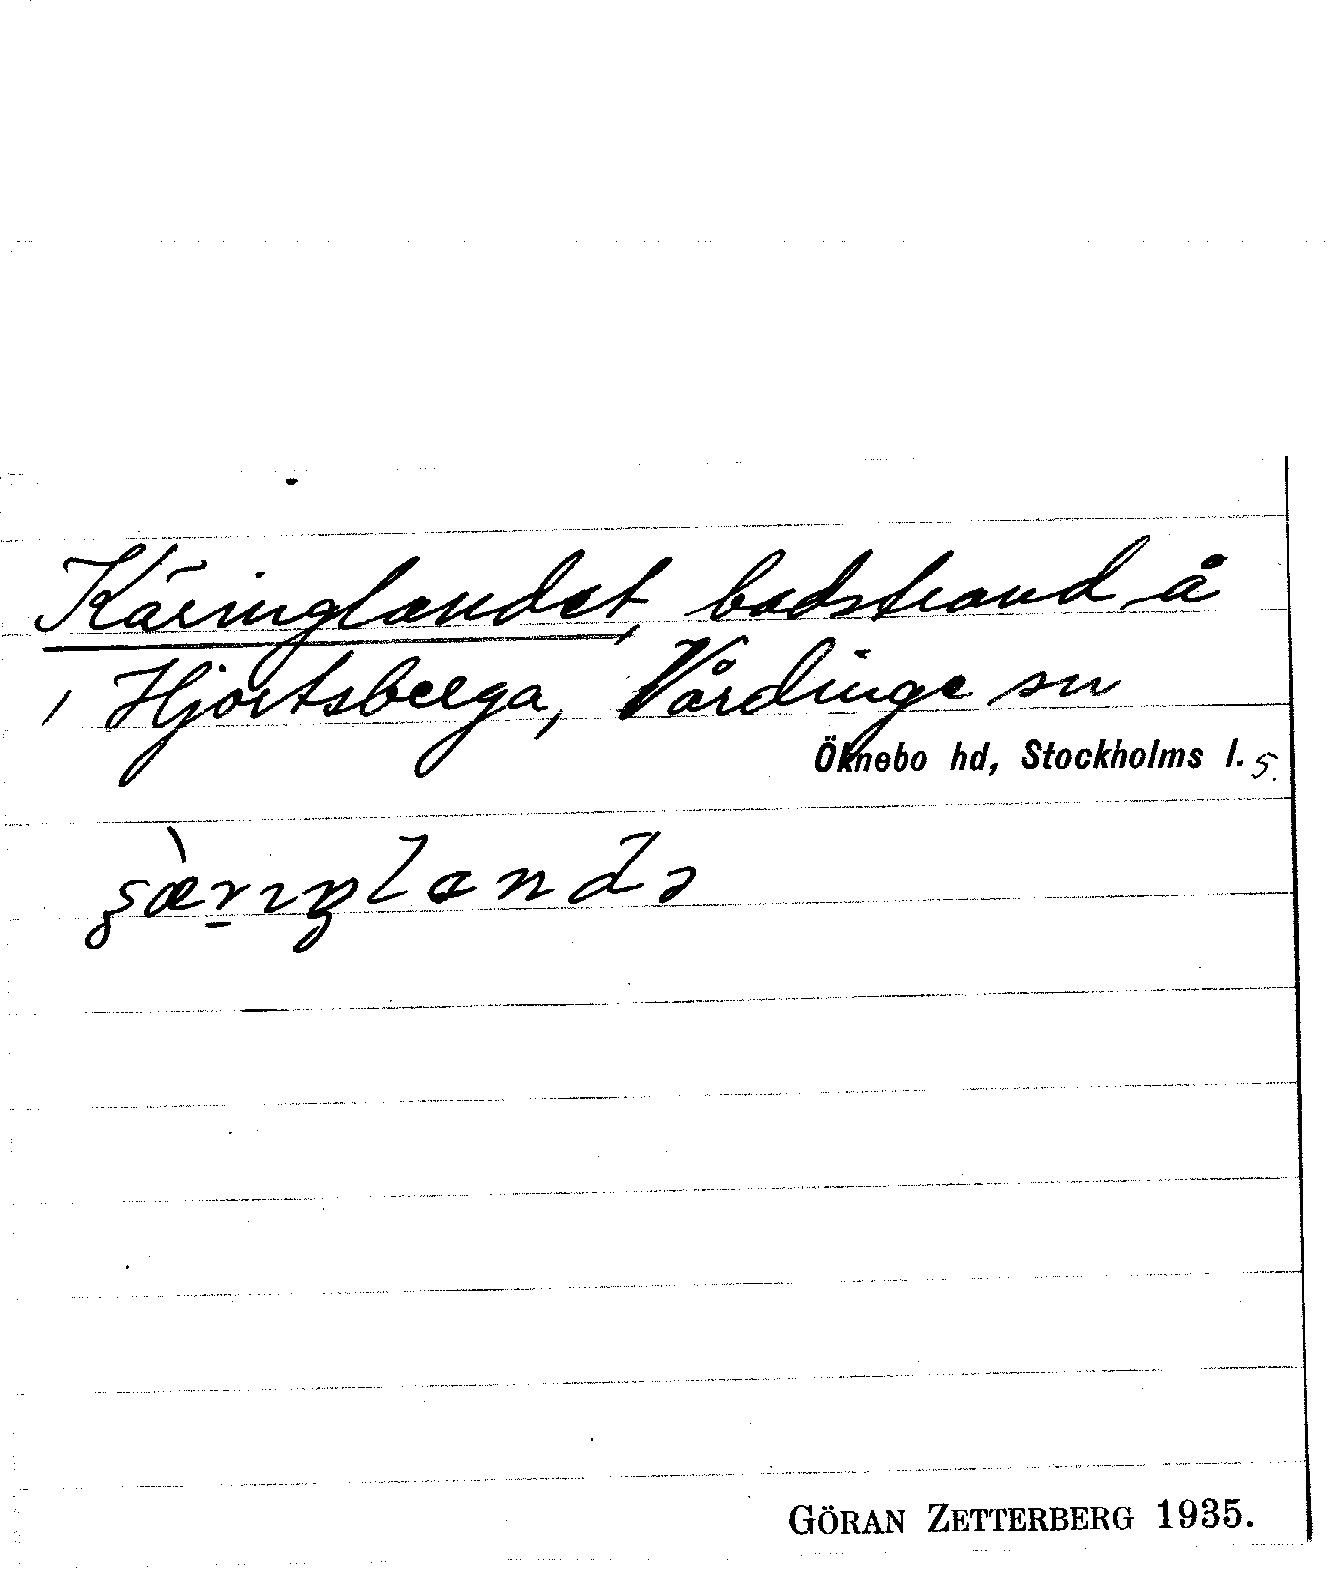 Käringlandet, badstrand å
, Hjortsberga, Vårdinge sn
Öknebo hd, Stockholms l. 5.
GÖRAN ZETTERBERG 1935.